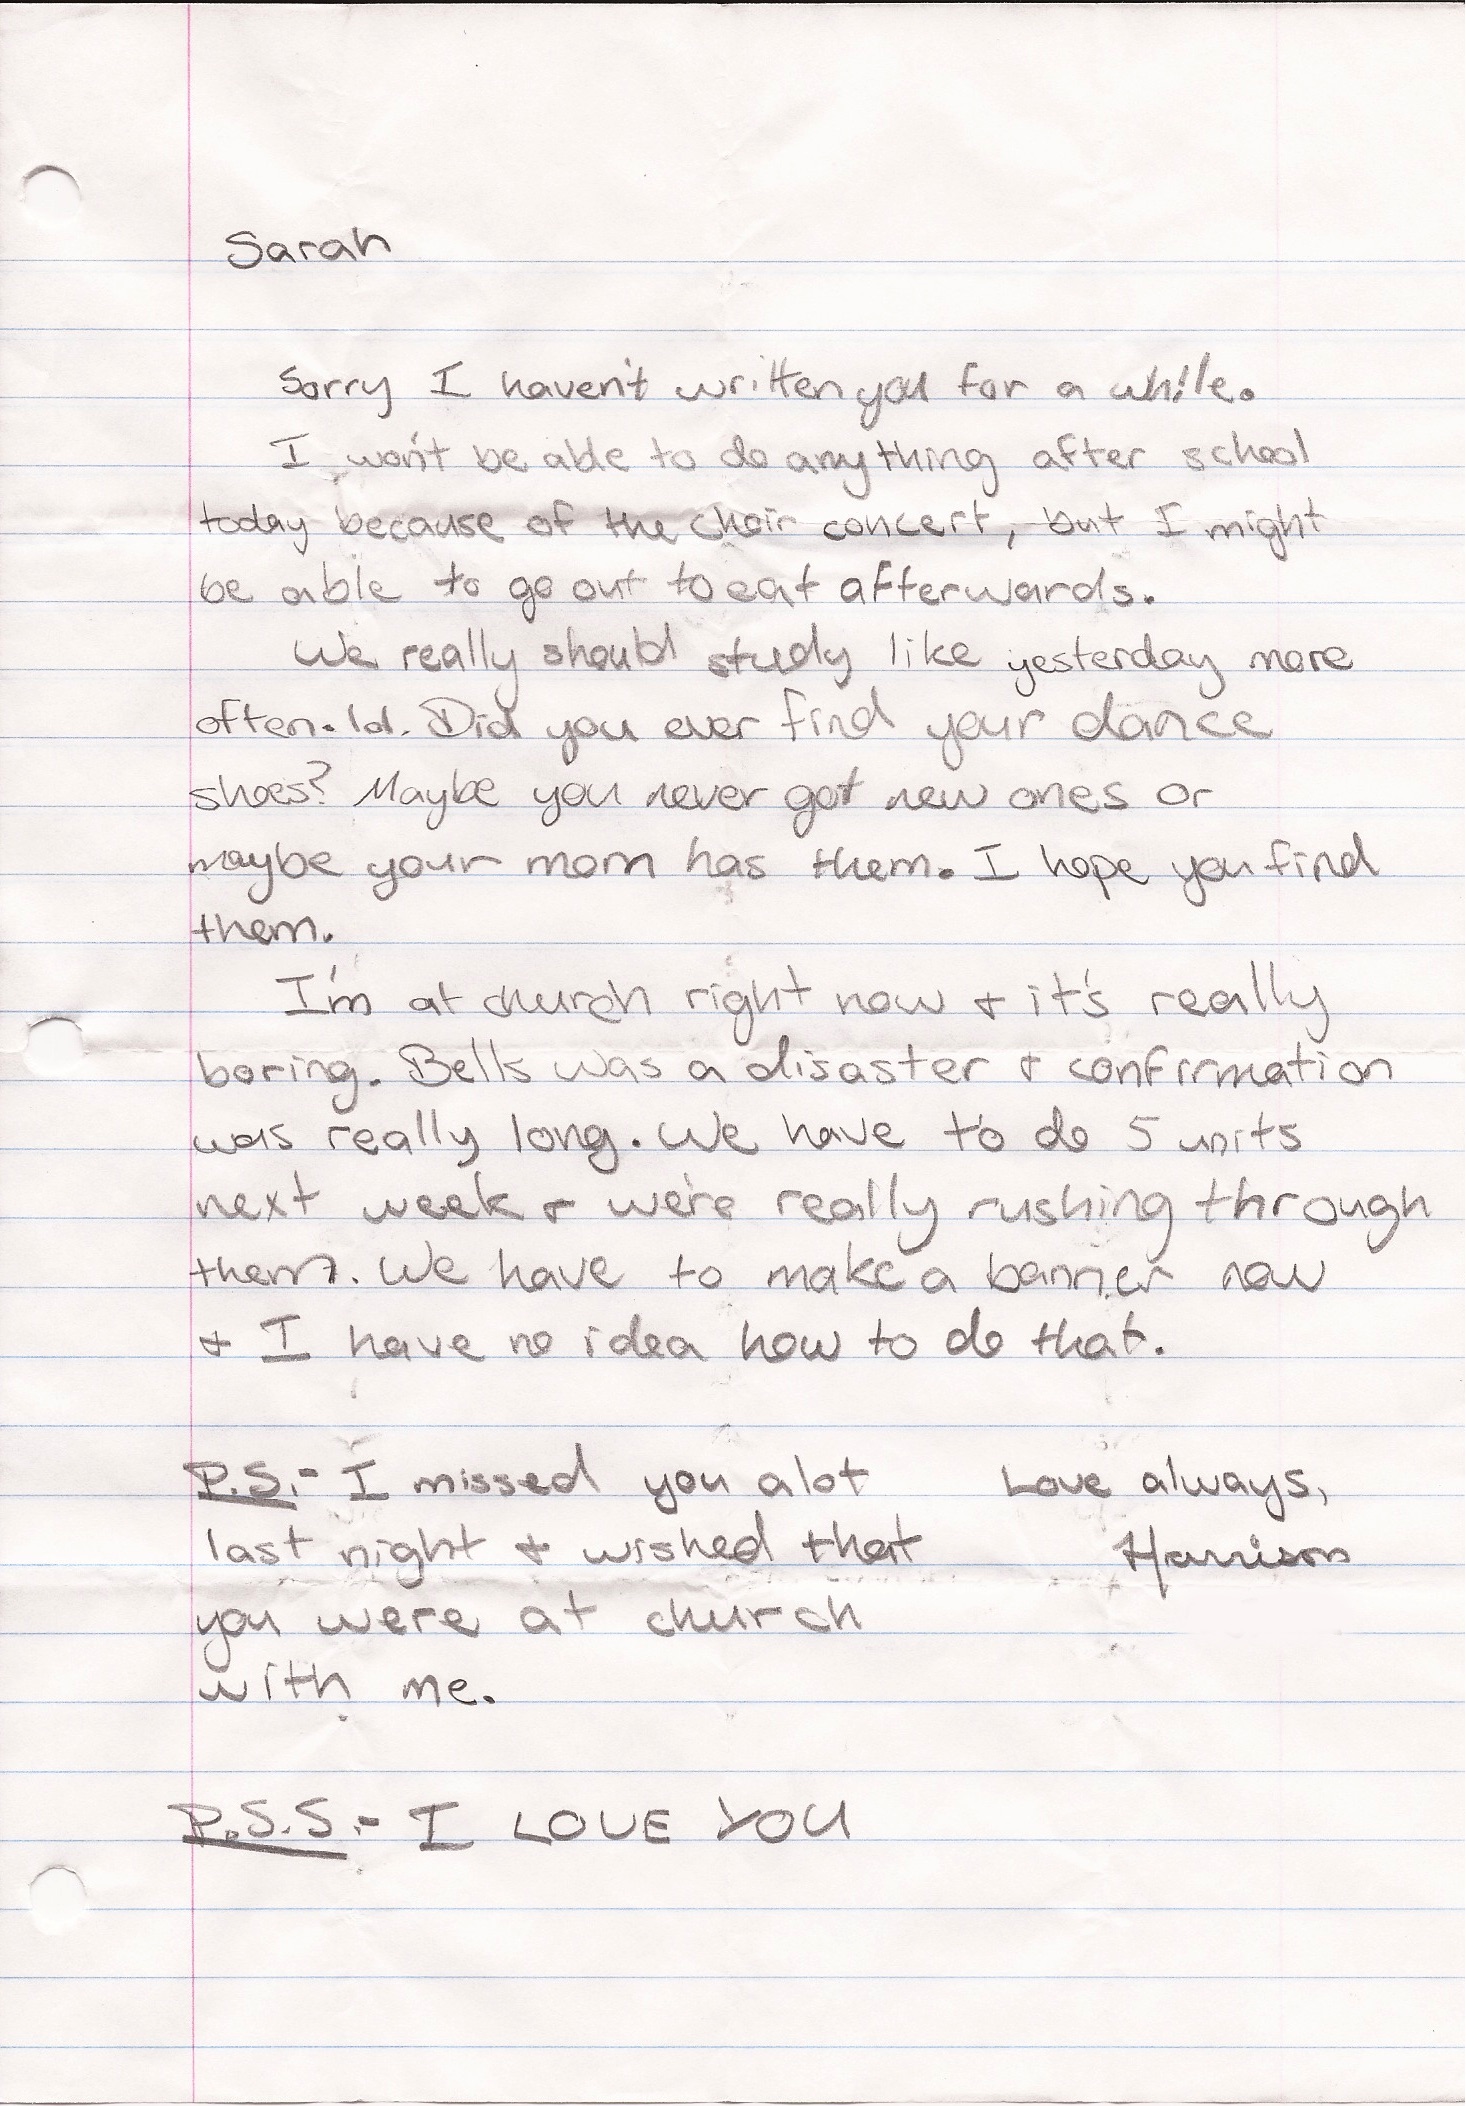 Sarah
Sorry I haven't written you for a while.
I won't be able to do anything after school
today because of the choir concert, but I might
be able to go out to eat afterwards.
We really should study like yesterday more
often. lol. Did you ever find your dance
shoes? Maybe you never got new ones or
maybe your mom has them. I hope you find
them.
I'm at church right now & it's really
boring. Bells was a disaster & confirmation
was really long. We have to do 5 units
next week & we're really rushing through
them. We have to make a banner now
& I have no idea how to do that.
P.S.- I missed you alot
last night & wished that
you were at church
with me.
Love always,
Harrison
P.S.S.- I LOVE YOU